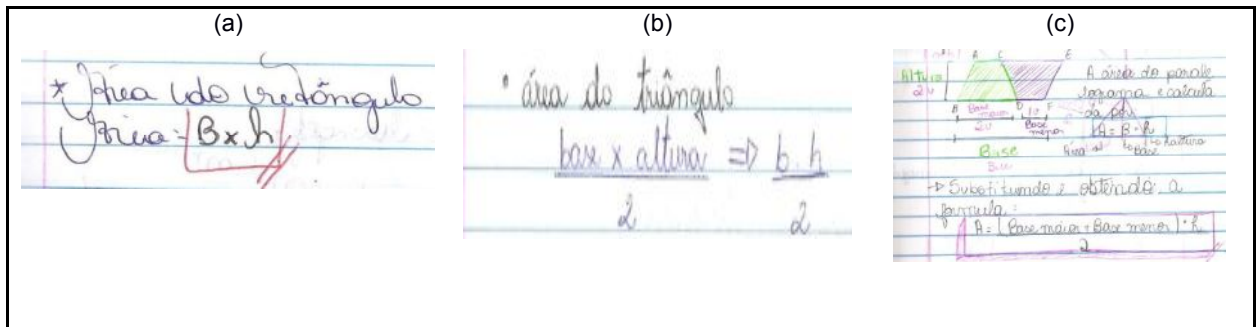 (a)
* Área do retângulo
Área = B x h
(b)
• área do triângulo
base x altura => b.h
2 2
(c)
A C E
Altura
2u
B D F
Base maior
2u
1u
Base menor
Base
3u
A área do parale
logramo e calcula
da por
A = B . h
Área
Base
altura
→ Substituindo e obtendo a
formula:
A = (Base maior + Base menor) . h
2